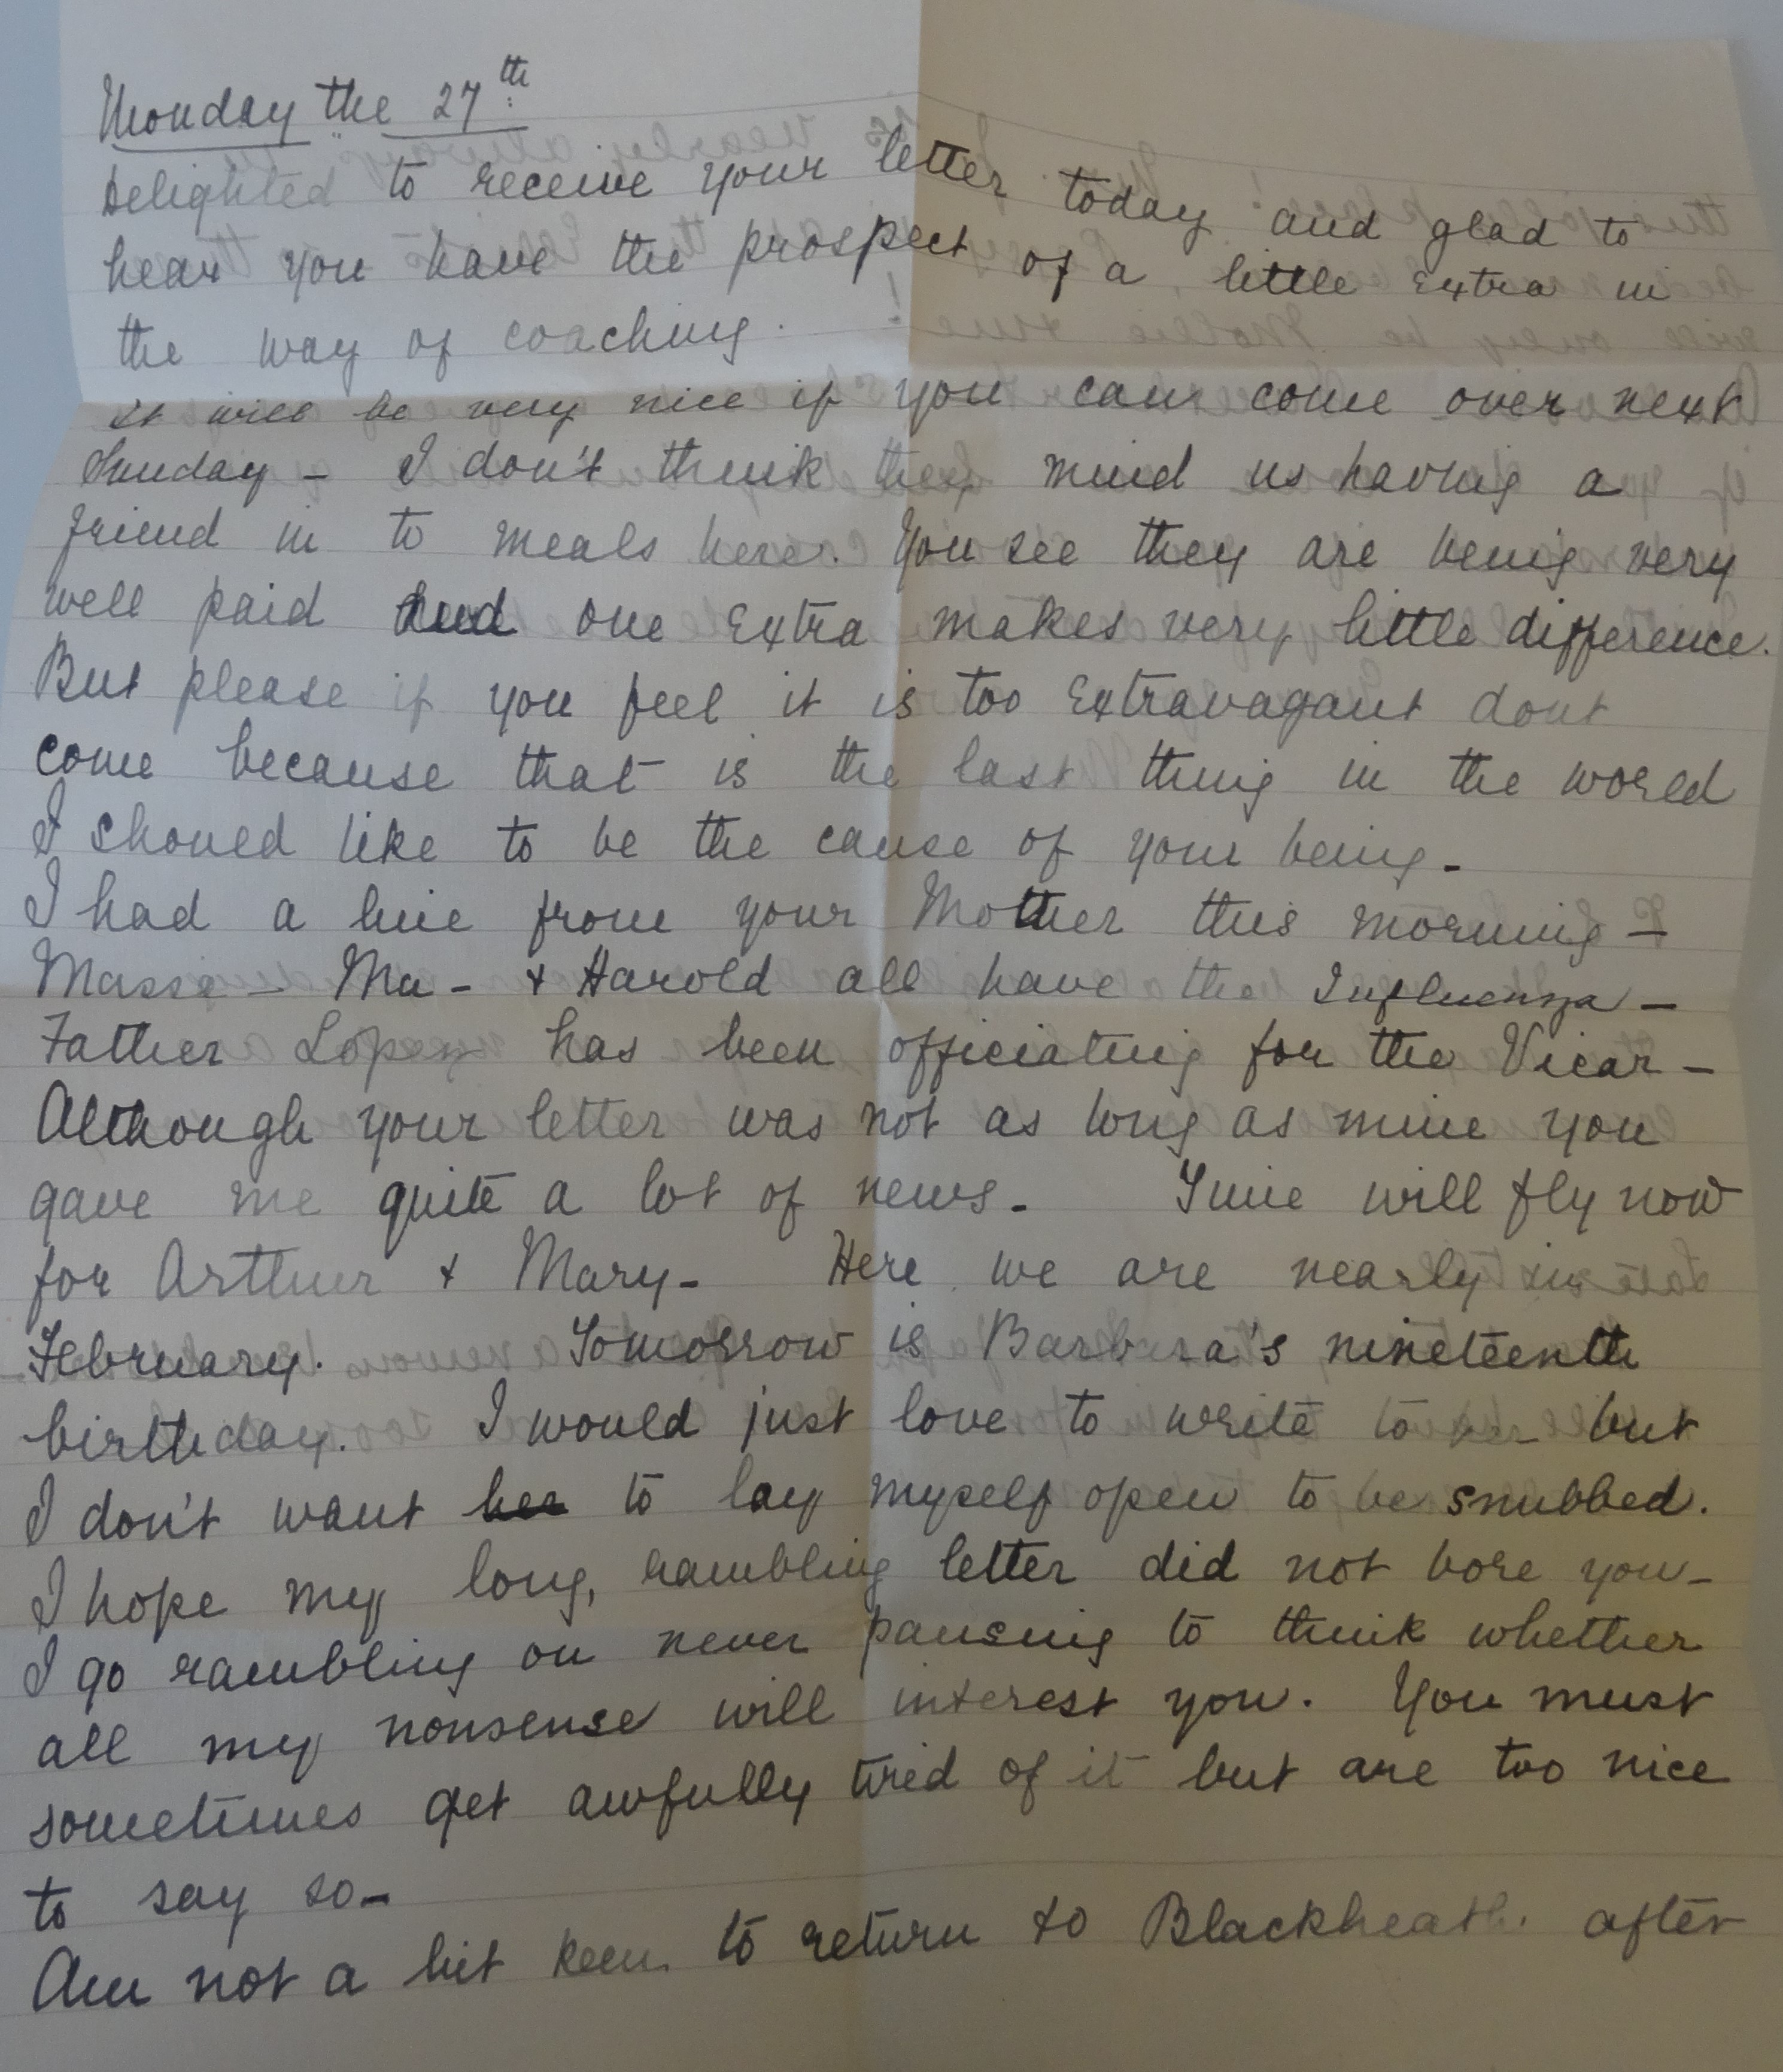 Monday the 27th
Delighted to receive your letter today and glad to
hear you have the prospect of a little extra in
the way of coaching.
It will be very nice if you can come over next
Sunday - I don't think they mind us having a
friend in to meals here. You see they are being very
well paid and one extra makes very little difference.
But please if you feel it is too extravagant dont
come because that is the last thing in the world
I should like to be the cause of your being -
I had a line from your Mother this morning -
Massa - Ma - & Harold all have the Influenza -
Father Lopez has been officiating for the Vicar -
Although your letter was not as long as mine you
gave me quite a lot of news - Time will fly now
for Arthur & Mary - Here we are nearly in
February. Tomorrow is Barbara's nineteenth
birthday. I would just love to write to her but
I don't want her to lay myself open to be snubbed.
I hope my long, rambling letter did not bore you -
I go rambling on never pausing to think whether
all my nonsense will interest you. You must
sometimes get awfully tired of it but are too nice
to say so -
Am not a bit keen to return to Blackheath after